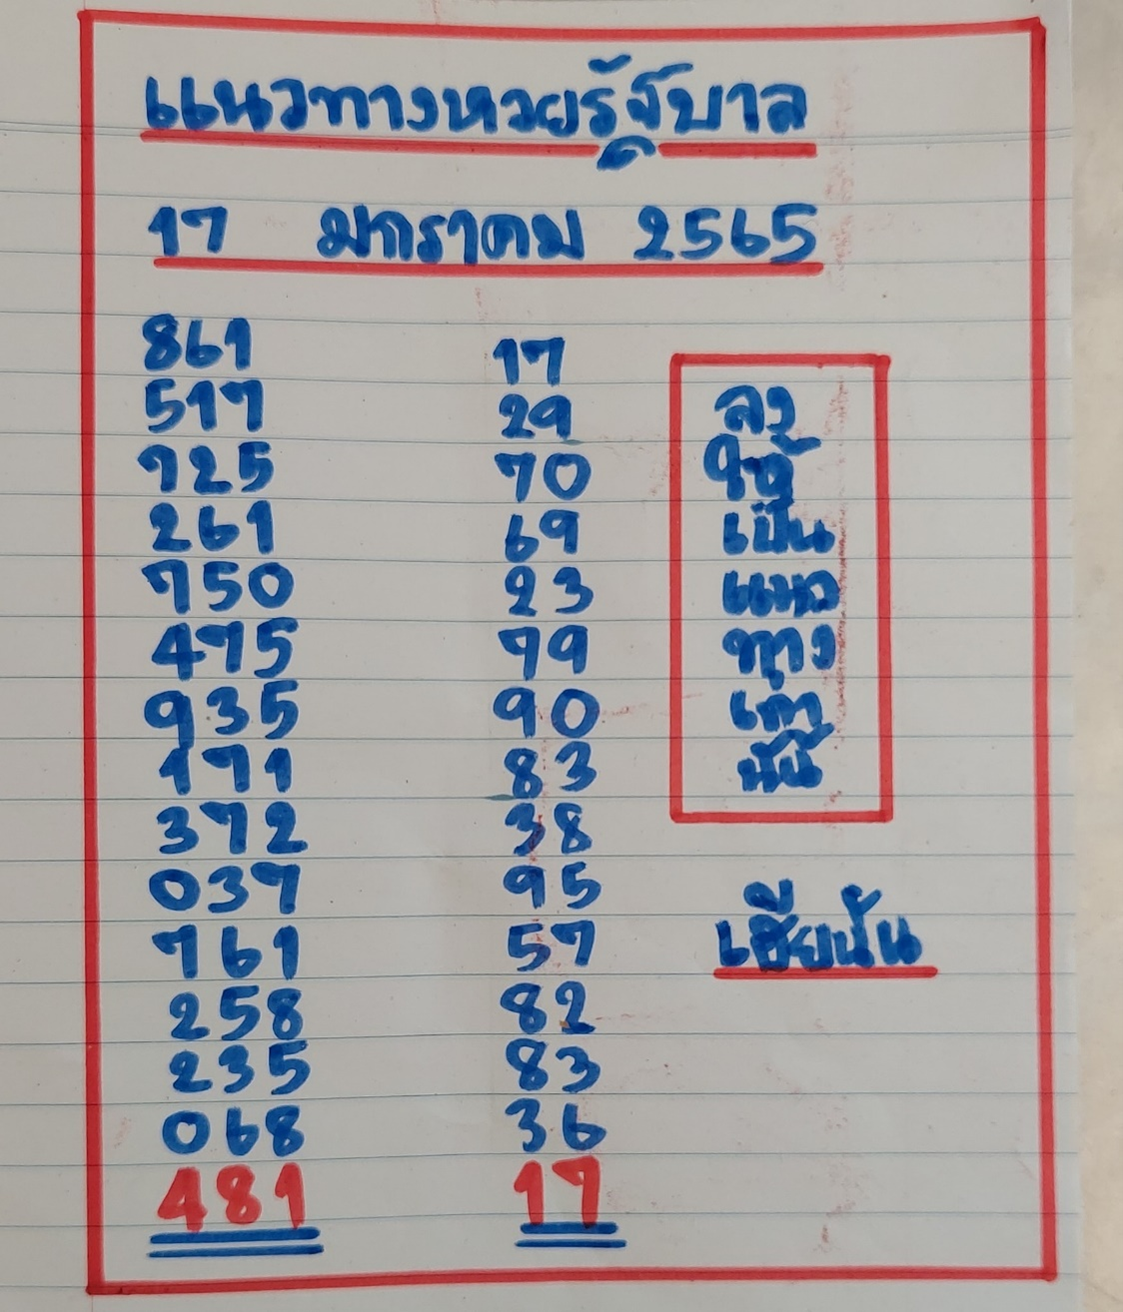 แนวทางหวยรัฐบาล
17 มกราคม 2565
861 17
517 29
725 70
261 69
750 23
475 79
935 90
171 83
372 38
037 95
761 57
258 82
235 83
068 36
481 17
ลง
ให้
เป็น
แนว
ทาง
เท่า
นั้น
เฮียนั้น